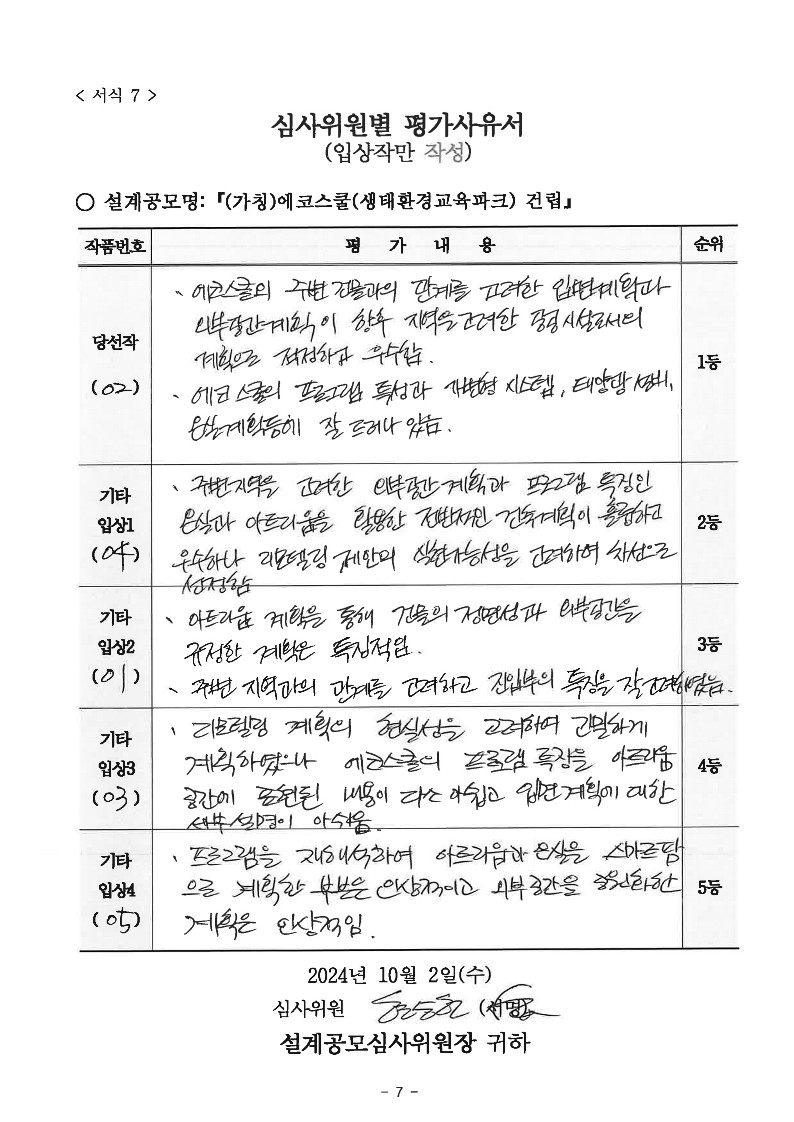 < 서식 7 >
심사위원별 평가사유서
(입상작만 작성)
○ 설계공모명:『(가칭)에코스쿨(생태환경교육파크) 건립』
작품번호 평 가 내 용 순위
당선작
(02)
、에코스쿨의 주변 건물과의 관계를 고려한 입면계획과
외부공간계획이 향후 지역을 고려한 공공시설로서의
계획으로 적정하고 우수함.
、에코스쿨의 프로그램 특성과 가변형 시스템, 태양광 설비,
온실계획등이 잘 드러나 있음.
1등
기타
입상1
(04)
、주변지역을 고려한 외부공간 계획과 프로그램 특징인
온실과 아트리움을 활용한 전반적인 건축계획이 훌륭하고
우수하나 리모델링 제안의 실현가능성을 고려하여 차선으로
선정함
2등
기타
입상2
(01)
、아트리움 계획을 통해 건물의 정면성과 외부공간을
규정한 계획은 특징적임.
、주변 지역과의 관계를 고려하고 진입부의 특징을 잘 고려하였음.
3등
기타
입상3
(03)
、리모델링 계획의 현실성을 고려하여 긴밀하게
계획하였으나 에코스쿨의 프로그램 특징을 아트리움
공간에 표현된 내용이 다소 아쉽고 입면계획에 대한
세부설명이 아쉬움.
4등
기타
입상4
(05)
、프로그램을 재해석하여 아트리움과 온실을 스마트팜
으로 계획한 부분은 인상적이고 외부공간을 공원화한
계획은 인상적임.
5등
2024년 10월 2일(수)
심사위원 (서명)
설계공모심사위원장 귀하
- 7 -